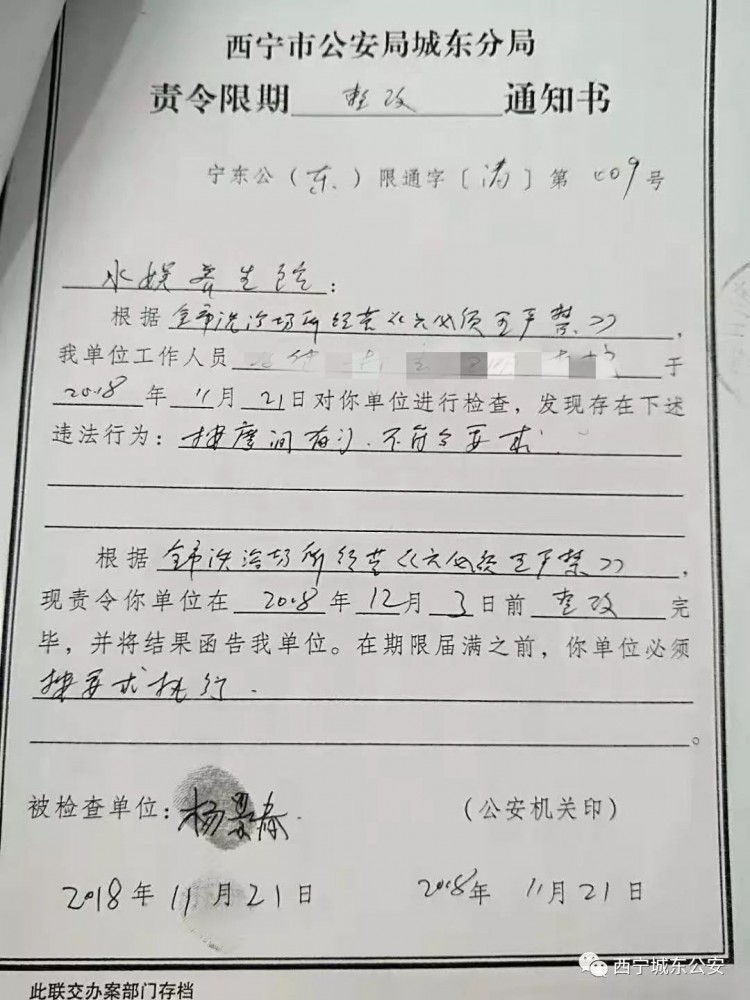 西宁市公安局城东分局
责令限期 整改 通知书
宁东公（东）限通字〔清〕第009号
水娱养生馆：
根据全市洗浴场所经营《六必须五严禁》，
我单位工作人员 于
2018年11月21日对你单位进行检查，发现存在下述
违法行为：按摩间有门、不符合要求
根据全市洗浴场所经营《六必须五严禁》，
现责令你单位在2018年12月3日前整改完
毕，并将结果函告我单位。在期限届满之前，你单位必须
按要求执行.
。
被检查单位：杨景春. （公安机关印）
2018年11月21日 2018年11月21日
西宁城东公安
此联交办案部门存档